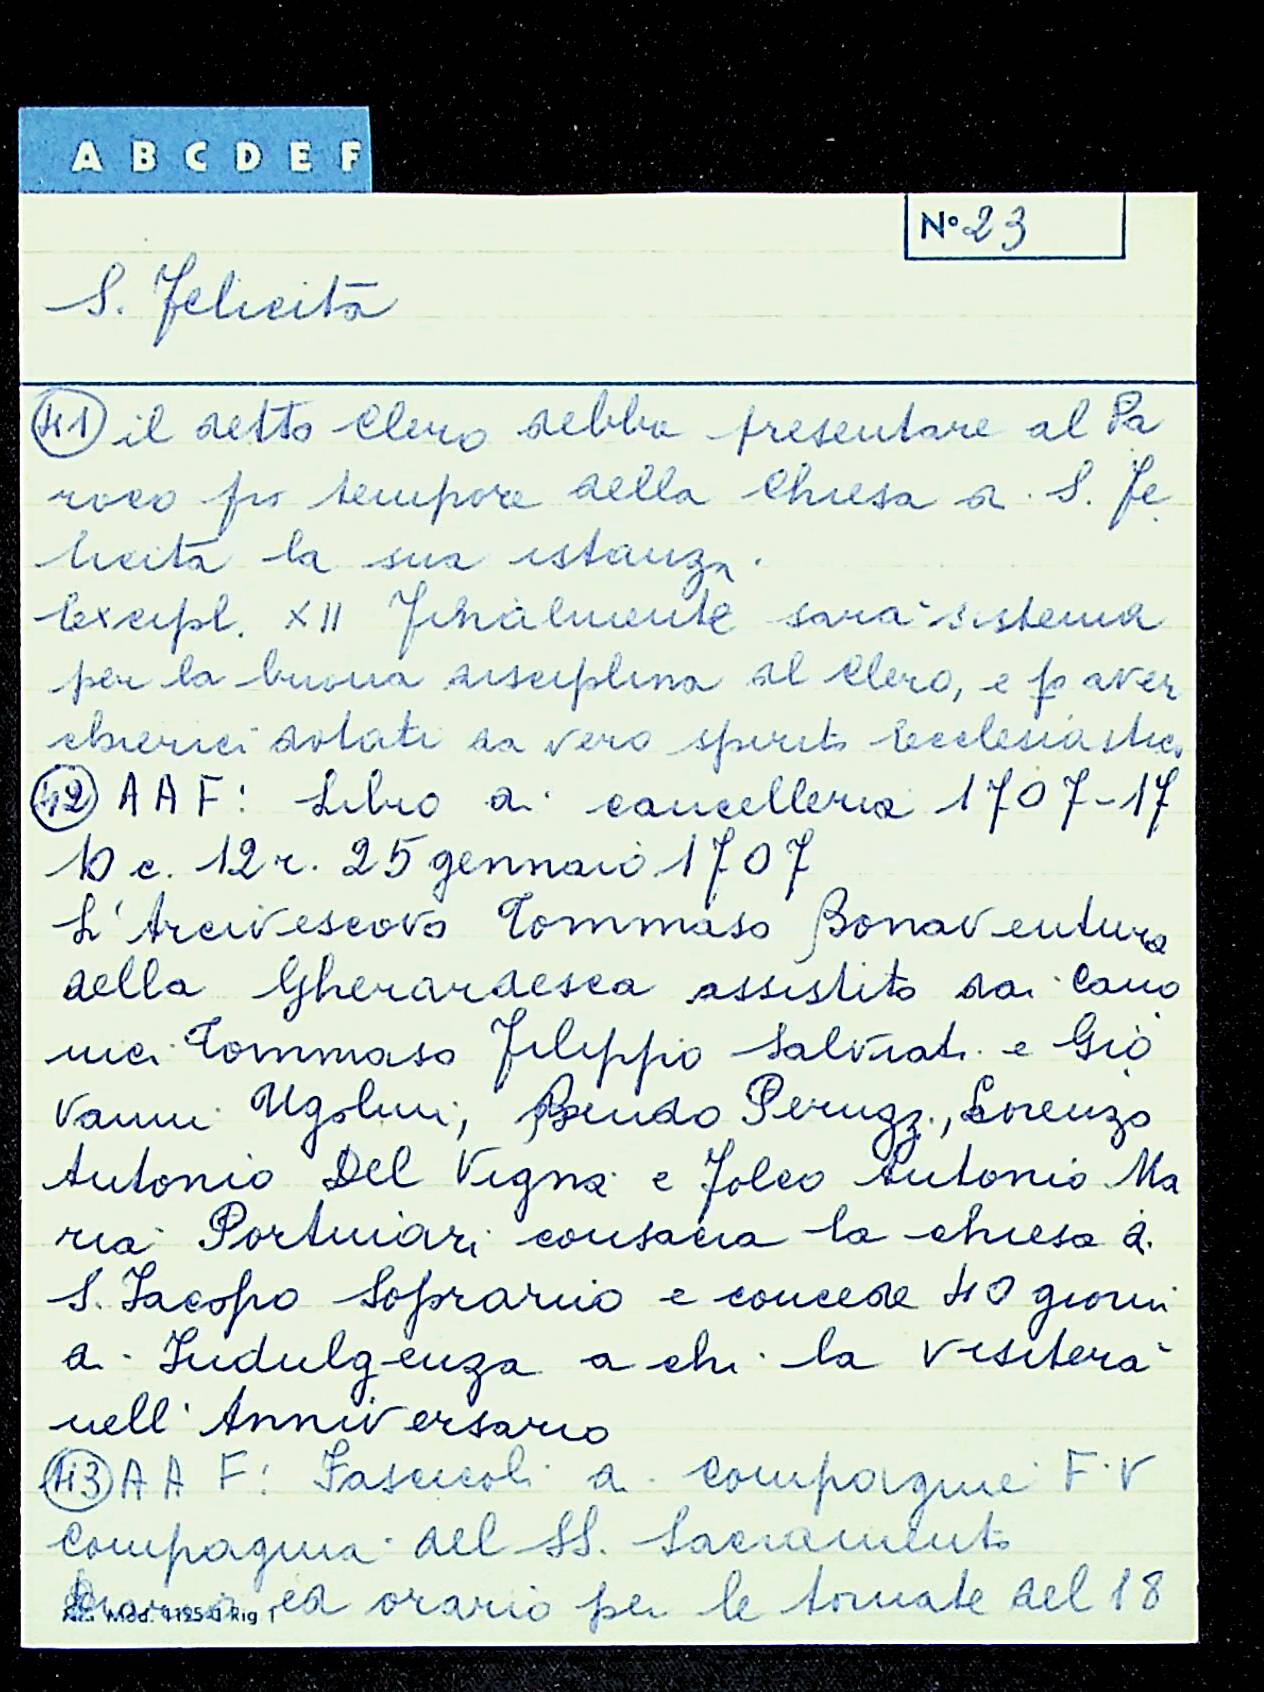 A B C D E F
N° 23
S. Felicità
41 il detto Clero debba presentare al Pa
roco pro tempore della Chiesa di S. Fe
licità la sua istanza.
Excepl. XII Finalmente sarà sistema
per la buona disciplina del Clero, e p aver
chierici dotati da vero spirito Ecclesiastico
42 A A F: Libro di cancelleria 1707-17
10 c. 12 r. 25 gennaio 1707
L'Arcivescovo Tommaso Bonaventura
della Gherardesca assistito dai Cano
nici Tommaso Filippo Salviati e Gio
vanni Ugolini, Bindo Peruzzi, Lorenzo
Antonio Del Vigna e Folco Antonio Ma
ria Portinari consacra la chiesa di
S. Iacopo Soprarno e concede 40 giorni
di Indulgenza a chi la visiterà
nell'Anniversario
43 A A F: Fascicoli di compagnie F. V
Compagnia del SS. Sacramento
ed orario per le tornate del 18